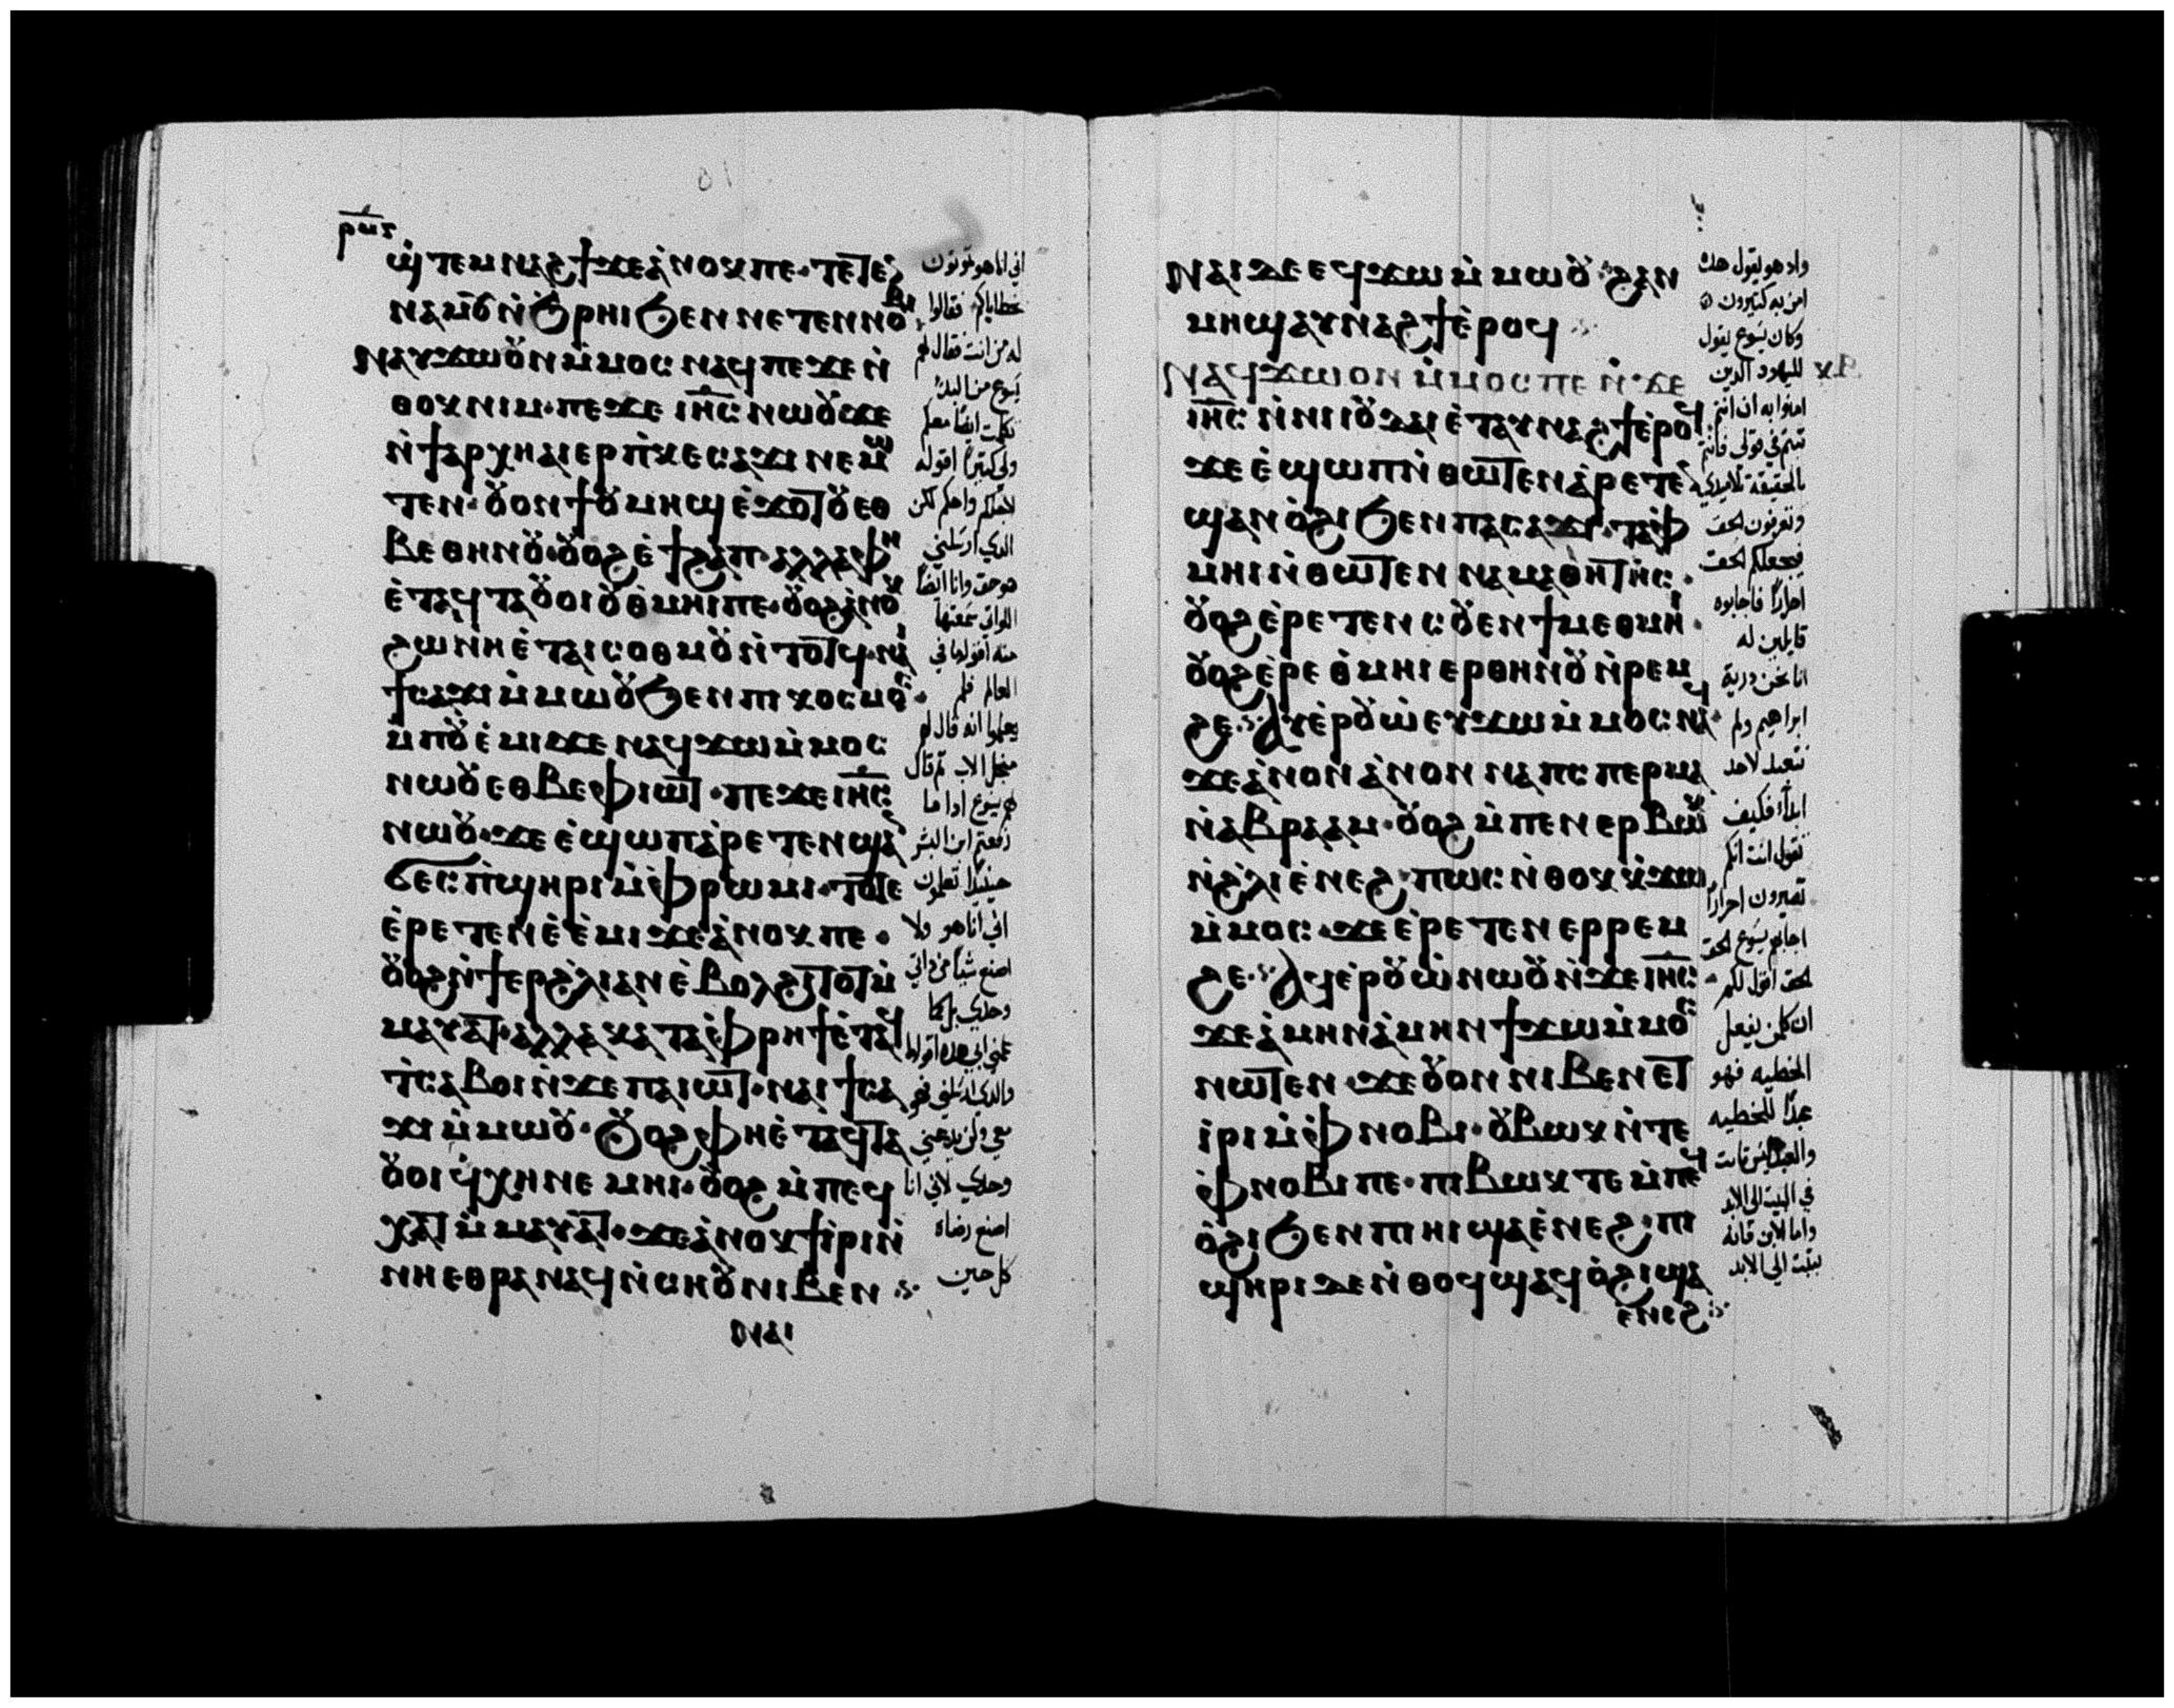 ⲣⲙⲋ
ϣⲧⲉⲙⲛⲁϩϯϫⲉⲁⲛⲟⲕⲡⲉ·ⲧⲉⲧⲉ
ⲛⲁⲙⲟⲩⲛϧⲣⲏⲓϧⲉⲛⲛⲉⲧⲉⲛⲛⲟⲃⲓ
ⲛⲁⲩϫⲱⲟⲩⲛⲙⲙⲟⲥⲛⲁϥⲡⲉϫⲉⲛ
ⲑⲟⲕⲛⲓⲙ·ⲡⲉϫⲉ ⲓⲏⲥ ⲛⲱⲟⲩϫⲉ
ⲛϯⲁⲣⲭⲏⲁⲓⲉⲣⲡⲕⲉⲥⲁϫⲓ ⲛⲉⲙⲱ
ⲧⲉⲛ·ⲟⲩⲟⲛϯⲟⲩⲙⲏϣⲉϫⲟⲧⲟⲩⲉⲑ
ⲃⲉⲑⲏⲛⲟⲩ·ⲟⲩⲟϩⲉϯϩⲁⲡ·ⲁⲗⲗⲁⲫⲏ
ⲉⲧⲁϥⲧⲁⲟⲩⲟⲓⲟⲩⲑⲙⲏⲓⲡⲉ·ⲟⲩⲟϩⲁⲛⲟⲕ
ϩⲱⲛⲏⲉⲧⲁⲓⲥⲟⲑⲙⲟⲩⲛⲧⲟⲧϥ·ⲛⲁⲓ
ϯⲥⲁϫⲓⲙⲙⲱⲟⲩϧⲉⲛⲡⲓⲕⲟⲥⲙⲟⲥ·
ⲙⲡⲟⲩⲉⲙⲓϫⲉ ⲛⲁϥϫⲱⲙⲙⲟⲥ
ⲛⲱⲟⲩⲉⲑⲃⲉⲫⲓⲱⲧ·ⲡⲉϫⲉⲓⲏⲥ
ⲛⲱⲟⲩ·ϫⲉ ⲉϣⲱⲡⲁⲣⲉⲧⲉⲛϣⲁⲛ
ϭⲉⲥⲡϣⲏⲣⲓⲙⲫⲣⲱⲙⲓ·ⲧⲟⲧⲉ
ⲉⲣⲉⲧⲉⲛⲉⲉⲙⲓϫⲉⲁⲛⲟⲕⲡⲉ·
ⲟⲩⲟϩⲛϯⲉⲣϩⲗⲓⲁⲛⲉⲃⲟⲗϩⲓⲧⲟⲧⲙ
ⲙⲁⲩⲁⲧ·ⲁⲗⲗⲁⲕⲁⲧⲁⲫⲣⲏϯⲉⲧⲁϥ
ⲧⲥⲁⲃⲟⲓⲛϫⲉⲡⲁⲓⲱⲧ·ⲛⲁⲓϯⲥⲁ
ϫⲓⲙⲙⲱⲟⲩ·ⲟⲩⲟϩⲫⲏⲉⲧⲁϥⲧⲁ
ⲟⲩⲟⲓϥⲭⲏⲛⲉⲙⲏⲓ·ⲟⲩⲟϩⲙⲡⲉϥ
ⲭⲁⲧⲙⲙⲁⲩⲁⲧ·ϫⲉⲁⲛⲟⲕϯⲓⲣⲓⲛ
ⲛⲏⲉⲑⲣⲁⲛⲁϥⲛⲥⲏⲟⲩⲛⲓⲃⲉⲛ
ⲛⲁⲓ
اني انا هو تموتون
بخطاياكم فقالوا
له من انت فقال لهم
يسوع من البدء
تكلمت ايضاً معكم
ولي كثيراً اقوله
لاجلكم واحكم لكن
الذي ارسلني
هو حق وانا ايضاً
اللواتي سمعتها
منه اقولها في
العالم فلم
يعلموا انه قال لهم
من اجل الاب ثم قال
لهم يسوع اذا ما
رفعتم ابن البشر
حينيذاً تعلمون
اني انا هو ولا
اصنع شياً من ذاتي
وحدي بل كما
علمني ابي هذه اقولها
والذي ارسلني فهو
معي ولم يدعني
وحدي لاني انا
اصنع رضاه
كل حين
ⲛⲁⲓϫⲉⲉϥϫⲱⲙⲙⲱⲟⲩ·ϩⲁⲛ
ⲙⲏϣⲁⲩⲛⲁϩϯⲉⲣⲟϥ
ⲛⲁϥϫⲱⲟⲛⲙⲙⲟⲥⲡⲉⲛϫⲉ
ⲓⲏⲥ ⲛⲛⲓⲓⲟⲩⲇⲁⲓⲉⲧⲁⲩⲛⲁϩϯⲉⲣⲟϥ
ϫⲉⲉϣⲱⲡⲛⲑⲱⲧⲉⲛⲁⲣⲉⲧⲉⲛ
ϣⲁⲛⲟϩⲓϧⲉⲛⲡⲁⲥⲁϫⲓ·ⲧⲁⲫ
ⲙⲏⲓⲛⲑⲱⲧⲉⲛ ⲛⲁⲙⲁⲑⲏⲧⲏⲥ·
ⲟⲩⲟϩⲉⲣⲉⲧⲉⲛⲥⲟⲩⲉⲛϯⲙⲉⲑⲙⲏⲓ·
ⲟⲩⲟϩⲉⲣⲉⲑⲙⲏⲓⲉⲣⲑⲏⲛⲟⲩⲛⲣⲉⲙ
ϩⲉ·ⲁⲩⲉⲣⲟⲩⲱⲉⲩϫⲱⲙⲙⲟⲥⲛⲁϥ·
ϫⲉⲁⲛⲟⲛⲁⲛⲟⲛ ⲛⲁⲡⲥⲡⲉⲣⲙⲁ
ⲛⲁⲃⲣⲁⲁⲙ·ⲟⲩⲟϩⲙⲡⲉⲛⲉⲣⲃⲱⲕ
ⲛϩⲗⲓⲉⲛⲉϩ·ⲡⲱⲥⲛⲑⲟⲕⲕϫⲱ
ⲙⲙⲟⲥ·ϫⲉⲉⲣⲉⲧⲉⲛⲉⲣⲣⲉⲙ
ϩⲉ·ⲁϥⲉⲣⲟⲩⲱⲛⲱⲟⲩⲛϫⲉⲓⲏⲥ
ϫⲉⲁⲙⲏⲛⲁⲙⲏⲛϯϫⲱⲙⲙⲟⲥ
ⲛⲱⲧⲉⲛ·ϫⲉⲟⲩⲟⲛⲛⲓⲃⲉⲛⲉⲧ
ⲓⲣⲓⲙⲫⲛⲟⲃⲓ·ⲟⲩⲃⲱⲕⲛⲧⲉ
ⲫⲛⲟⲃⲓⲡⲉ·ⲡⲓⲃⲱⲕⲇⲉⲙⲡⲁϥ
ⲟϩⲓϧⲉⲛⲡⲓⲏⲓϣⲁⲉⲛⲉϩ·ⲡⲓ
ϣⲏⲣⲓⲇⲉⲛⲑⲟϥϣⲁϥⲟϩⲓϣⲁ
ⲉⲛⲉϩ
واذ هو يقول هذه
امن به كثيرون
وكان يسوع يقول
لليهود الذين
امنوا به ان انتم
ثبتم في قولي فانتم
بالحقيقة تلاميذي
وتعرفون الحق
فيجعلكم الحق
احراراً فاجابوه
قايلين له
انا نحن ذرية
ابراهيم ولم
نتعبد لاحد
ابداً فكيف
تقول انت انكم
تصيرون احراراً
اجابهم يسوع الحق
الحق اقول لكم
ان كل من يفعل
الخطيه فهو
عبداً للخطيه
والعبد ليس ثابت
في البيت الى الابد
واما الابن فانه
يثبت الي الابد